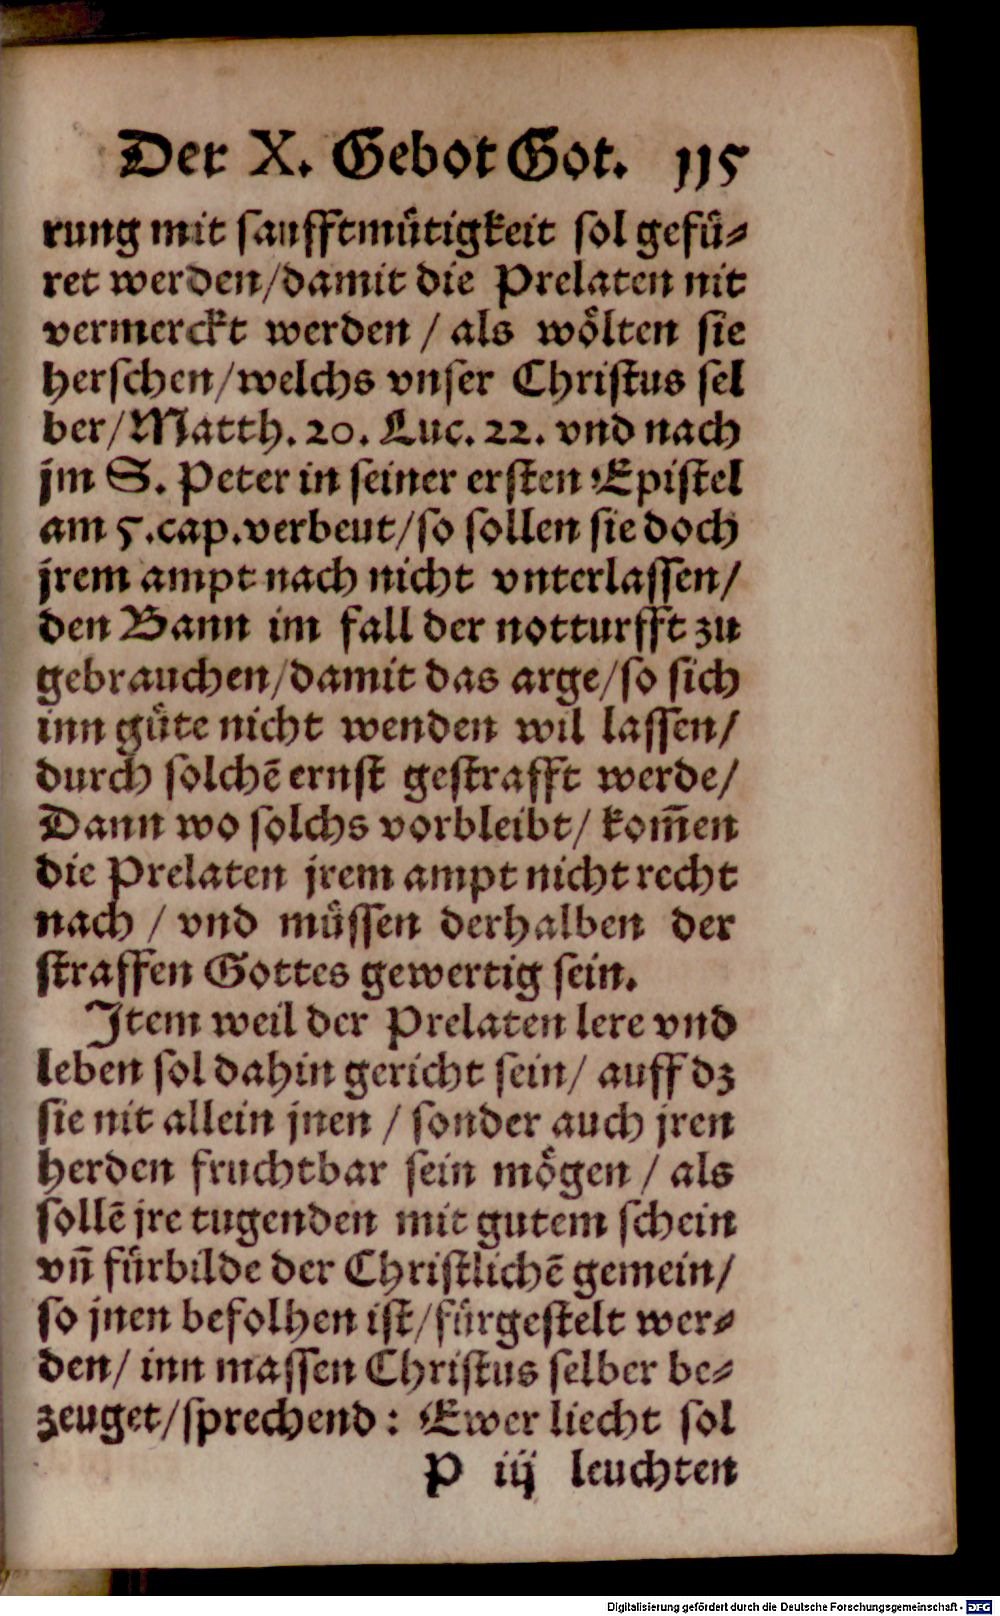 Der X. Gebot Got. 115
rung mit saufftmuͤtigkeit sol gefuͤ⸗
ret werden/damit die Prelaten nit
vermerckt werden / als woͤlten sie
herschen/welchs vnser Christus sel
ber/Matth. 20. Luc. 22. vnd nach
jm S. Peter in seiner ersten Epistel
am 5.cap.verbeut/so sollen sie doch
jrem ampt nach nicht vnterlassen/
den Bann im fall der notturfft zu
gebrauchen/damit das arge/so sich
inn guͤte nicht wenden wil lassen/
durch solchē ernst gestrafft werde/
Dann wo solchs vorbleibt/ kom̄en
die Prelaten jrem ampt nicht recht
nach / vnd muͤssen derhalben der
straffen Gottes gewertig sein.
Item weil der Prelaten lere vnd
leben sol dahin gericht sein/ auff dz
sie nit allein jnen / sonder auch jren
herden fruchtbar sein moͤgen / als
sollē jre tugenden mit gutem schein
vn̄ fuͤrbilde der Christlichē gemein/
so jnen befolhen ist/fuͤrgestelt wer⸗
den/ inn massen Christus selber be⸗
zeuget/sprechend: Ewer liecht sol
P iij leuchten
Digitalisierung gefördert durch die Deutsche Forschungsgemeinschaft - DFG